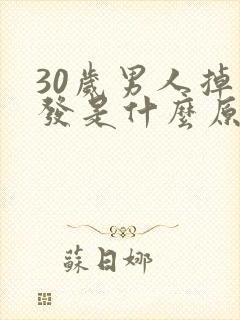 30歲男人掉
發是什麼原
蘇日娜